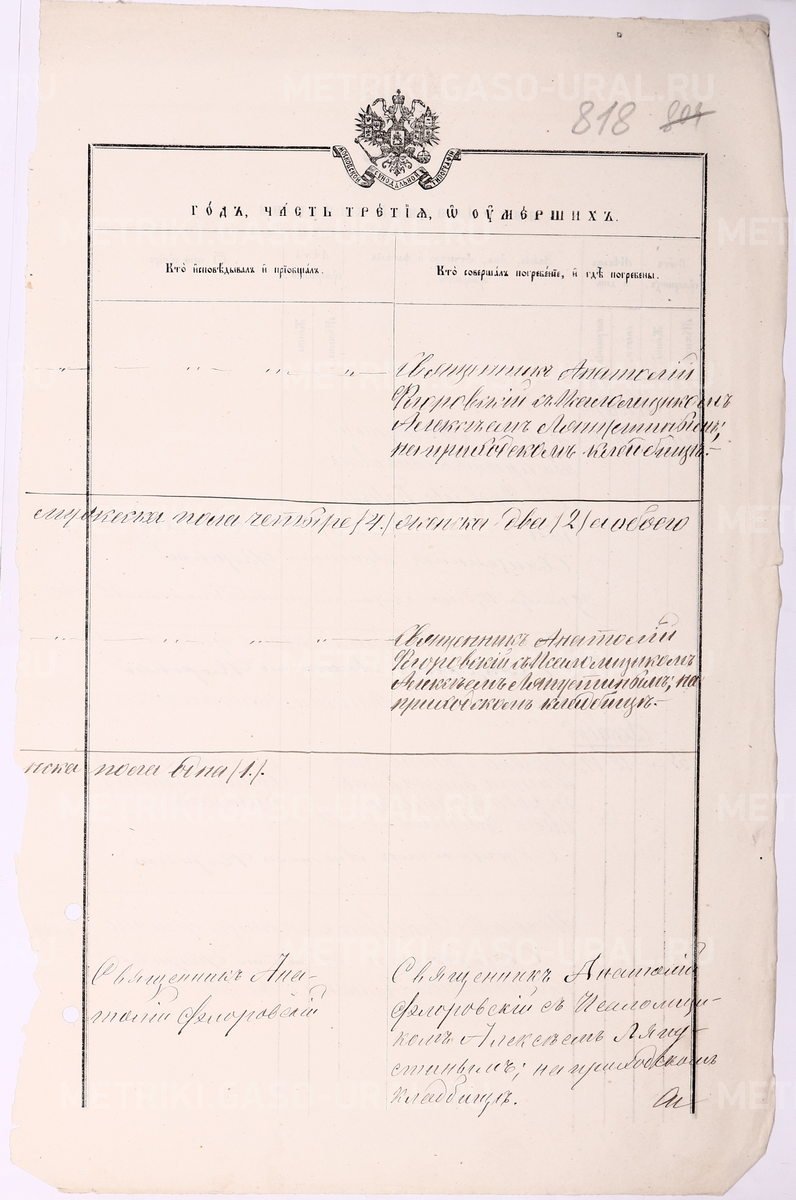 818 801
МОСКОВСКОЙ СѴНОДАЛЬНОЙ ТИПОГРАФІИ
ГО́ДЪ, ЧА́СТЬ ТРЕ́ТІѦ, Ѡ҆ ОУ҆МЕ́РШИХЪ.
Кто̀ и҆сповѣ́дывалъ и҆ пріѡбща́лъ.
Кто̀ соверша́лъ погребе́ніе, и҆ гдѣ̀ погребены̀.
„ — „ „ „ —
Священникъ Анатолій
Флоровскій съ Псаломщикомъ
Алексѣемъ Ляпустинымъ;
на приходскомъ кладбищѣ.—
мужеска пола четыре /4./ женска два /2/ а обоего
„ — „ „ „ —
Священникъ Анатолій
Флоровскій съ Псаломщикомъ
Алексѣемъ Ляпустинымъ; на
приходскомъ кладбищѣ.—
нска пола една /1./.
Священникъ Ана-
толій Флоровскій
Священникъ Анатолій
Флоровскій съ Псаломщи-
комъ Алексѣемъ Ляпу-
стинымъ; на приходскомъ
кладбищѣ.
METRIKI.GASO-URAL.RU